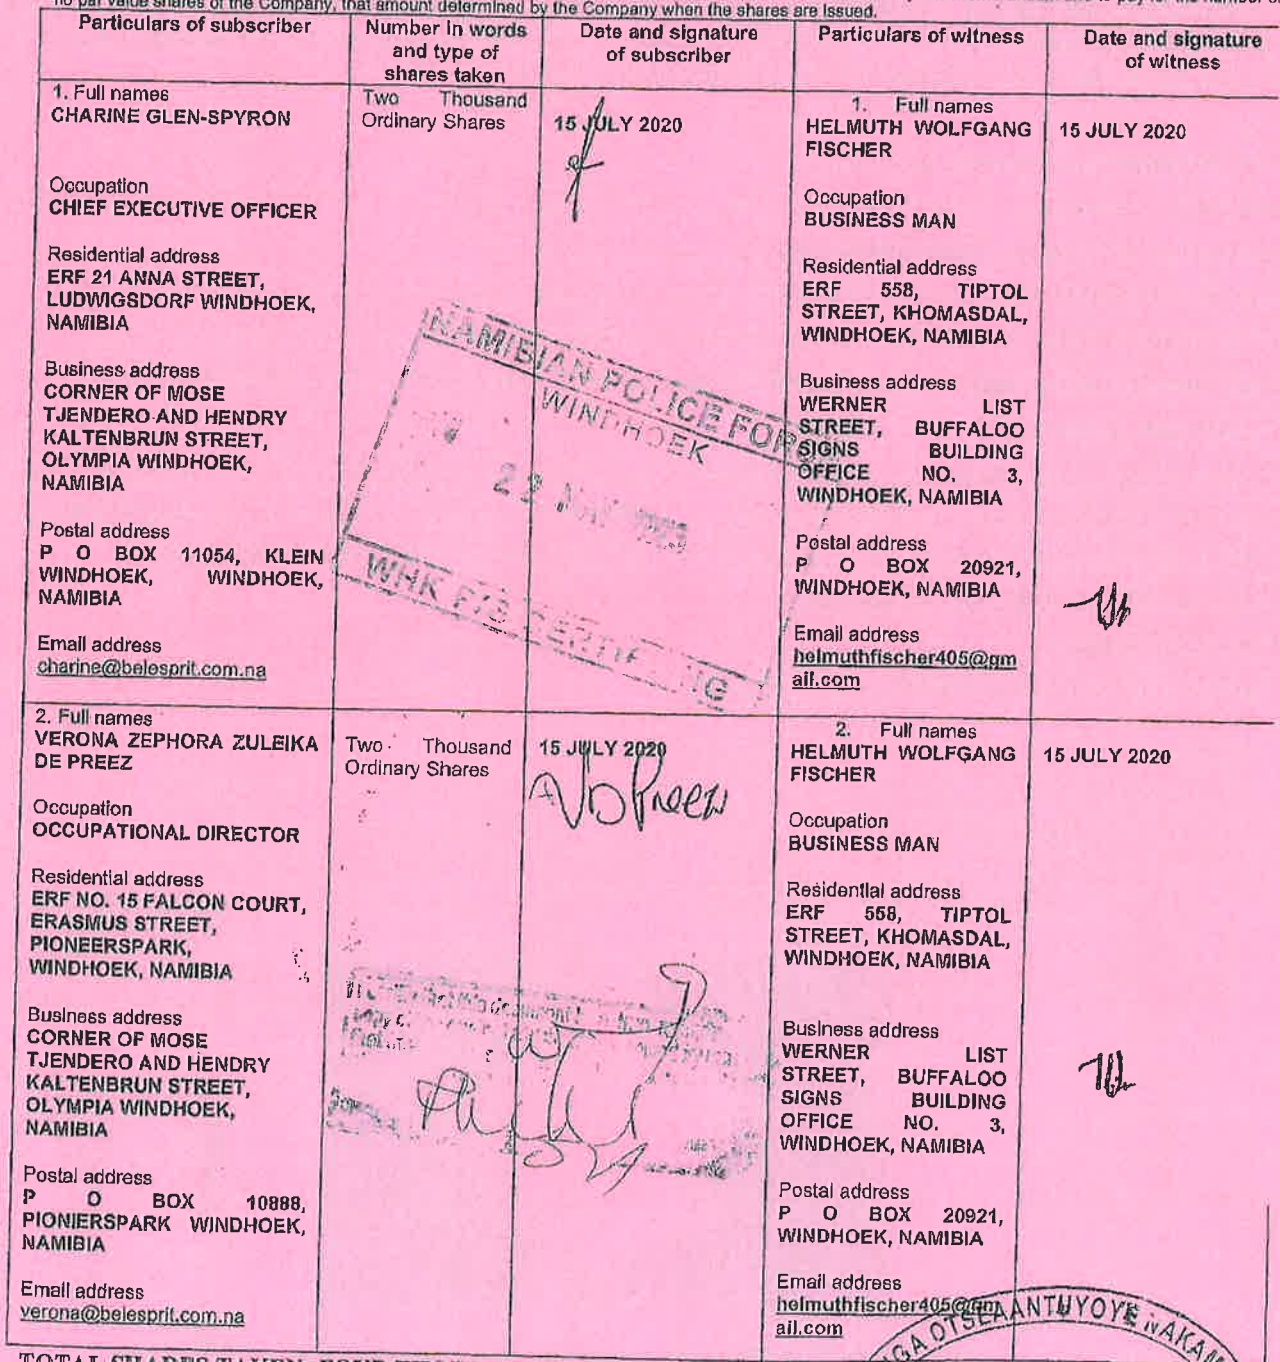 no par value shares of the Company, that amount determined by the Company when the shares are issued.
Particulars of subscriber
Number in words and type of shares taken
Date and signature of subscriber
Particulars of witness
Date and signature of witness
1. Full names
CHARINE GLEN-SPYRON
Occupation
CHIEF EXECUTIVE OFFICER
Residential address
ERF 21 ANNA STREET,
LUDWIGSDORF WINDHOEK,
NAMIBIA
Business address
CORNER OF MOSE
TJENDERO AND HENDRY
KALTENBRUN STREET,
OLYMPIA WINDHOEK,
NAMIBIA
Postal address
P O BOX 11054, KLEIN
WINDHOEK, WINDHOEK,
NAMIBIA
Email address
charine@belesprit.com.na
Two Thousand
Ordinary Shares
15 JULY 2020
1. Full names
HELMUTH WOLFGANG
FISCHER
Occupation
BUSINESS MAN
Residential address
ERF 558, TIPTOL
STREET, KHOMASDAL,
WINDHOEK, NAMIBIA
Business address
WERNER LIST
STREET, BUFFALOO
SIGNS BUILDING
OFFICE NO. 3,
WINDHOEK, NAMIBIA
Postal address
P O BOX 20921,
WINDHOEK, NAMIBIA
Email address
helmuthfischer405@gm
ail.com
15 JULY 2020
NAMIBIAN POLICE FOR
WINDHOEK
WHK
2. Full names
VERONA ZEPHORA ZULEIKA
DE PREEZ
Occupation
OCCUPATIONAL DIRECTOR
Residential address
ERF NO. 15 FALCON COURT,
ERASMUS STREET,
PIONEERSPARK,
WINDHOEK, NAMIBIA
Business address
CORNER OF MOSE
TJENDERO AND HENDRY
KALTENBRUN STREET,
OLYMPIA WINDHOEK,
NAMIBIA
Postal address
P O BOX 10888,
PIONIERSPARK WINDHOEK,
NAMIBIA
Email address
verona@belesprit.com.na
Two Thousand
Ordinary Shares
15 JULY 2020
2. Full names
HELMUTH WOLFGANG
FISCHER
Occupation
BUSINESS MAN
Residential address
ERF 558, TIPTOL
STREET, KHOMASDAL,
WINDHOEK, NAMIBIA
Business address
WERNER LIST
STREET, BUFFALOO
SIGNS BUILDING
OFFICE NO. 3,
WINDHOEK, NAMIBIA
Postal address
P O BOX 20921,
WINDHOEK, NAMIBIA
Email address
helmuthfischer405@gm
ail.com
15 JULY 2020